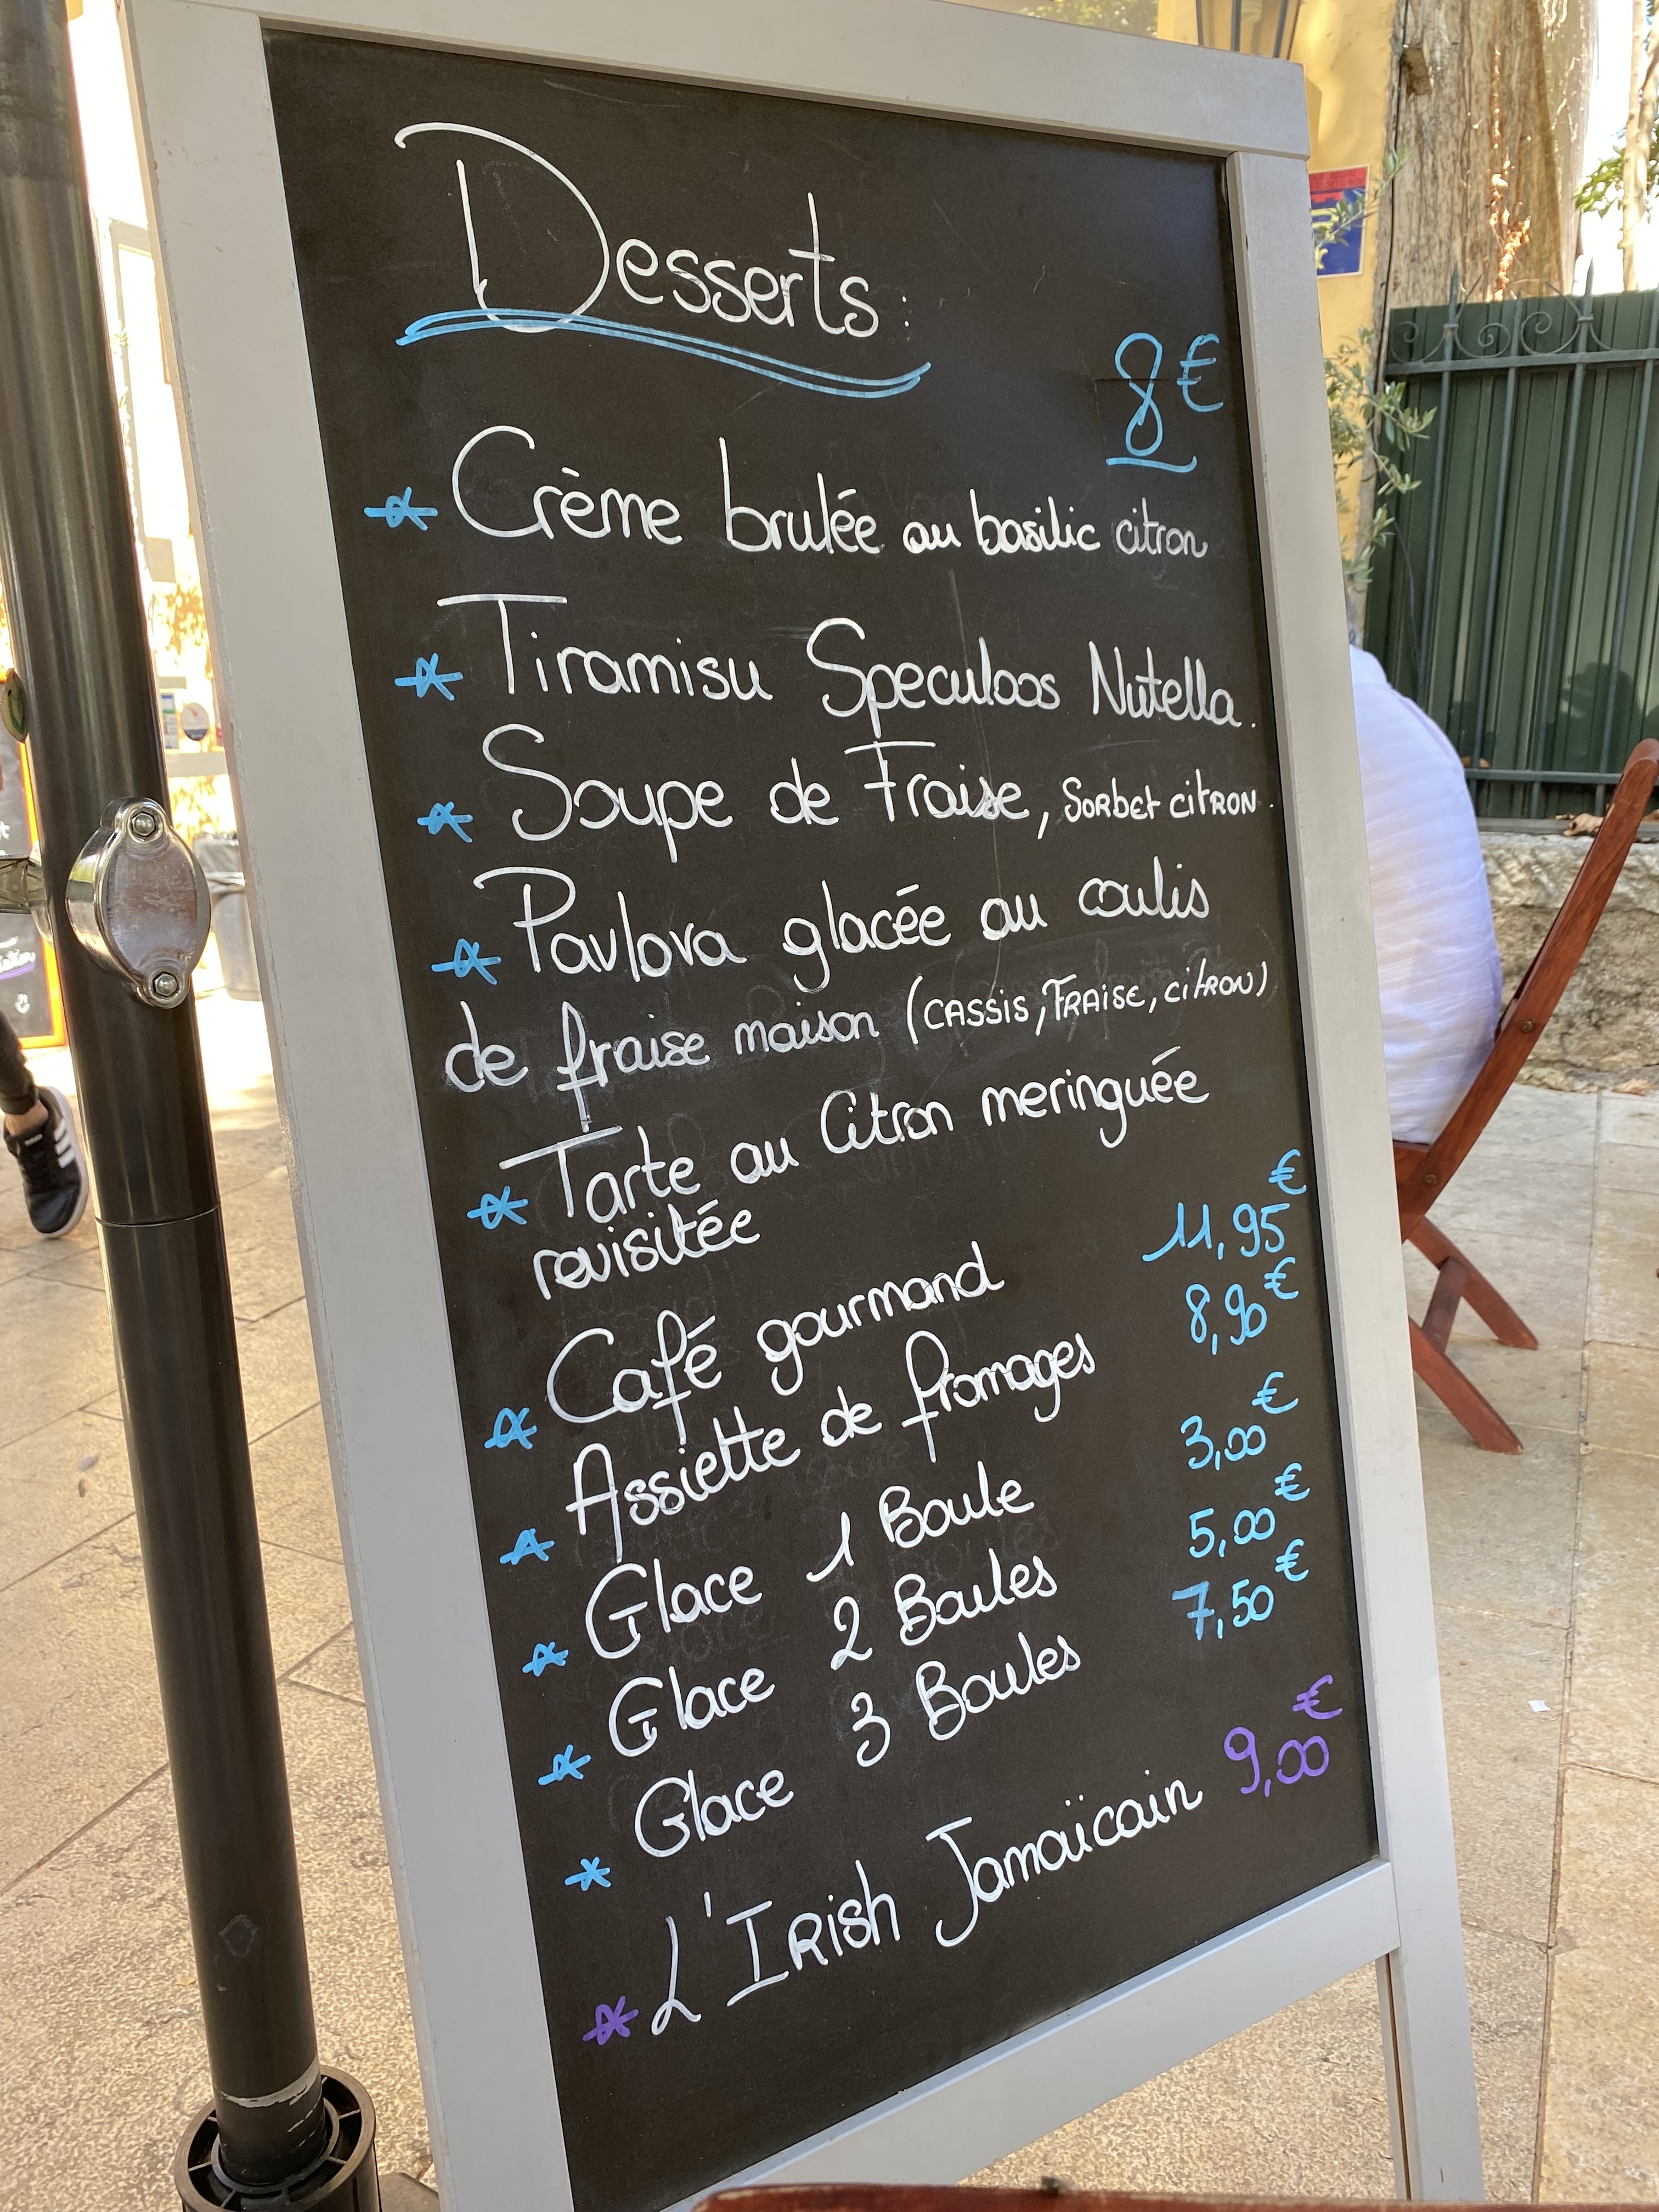 Desserts:
8€
* Crème brulée au basilic citron
* Tiramisu Speculoos Nutella.
* Soupe de Fraise, Sorbet citron.
* Pavlova glacée au coulis
de fraise maison (cassis, Fraise, citron)
* Tarte au Citron meringuée
revisitée
* Café gourmand 11,95€
* Assiette de fromages 8,90€
* Glace 1 Boule 3,00€
* Glace 2 Boules 5,00€
* Glace 3 Boules 7,50€
* L'Irish Jamaïcain 9,00€